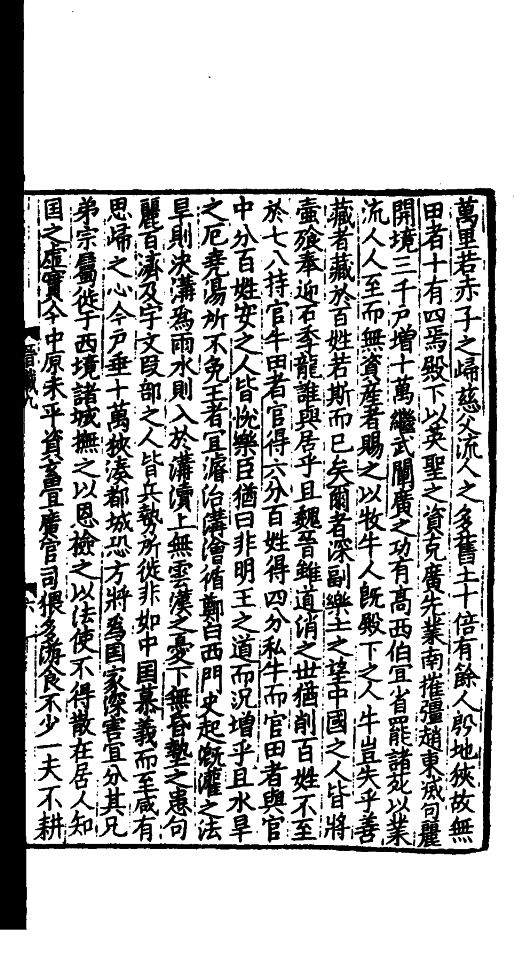 萬里若赤子之歸慈父流人之多舊土十倍有餘人殷地狹故無
田者十有四焉殿下以英聖之資克廣先業南摧彊趙東滅句麗
開境三千戶增十萬繼武闡廣之功有髙西伯宜省罷諸苑以業
流人人至而無資産者賜之以牧牛人旣殿下之人牛豈失乎善
藏者藏於百姓若斯而已矣爾者深副樂土之望中國之人皆將
壷飱奉迎石季龍誰與居乎且魏晉雖道消之世猶削百姓不至
於七八持官牛田者官得六分百姓得四分私牛而官田者與官
中分百姓安之人皆悅樂臣猶曰非明王之道而況增乎且水旱
之厄堯湯所不免王者宜濬治溝澮循鄭白西門史起漑灌之法
旱則决溝爲雨水則入於溝瀆上無雲漢之憂下無昏墊之患句
麗百濟及宇文段部之人皆兵勢所徙非如中国慕義而至咸有
思歸之心今戶垂十萬狹湊都城恐方將爲国家深害宜分其兄
弟宗屬徙于西境諸城撫之以恩檢之以法使不得散在居人知
国之虛實今中原未平資畜宜廣官司猥多游食不少一夫不耕
六